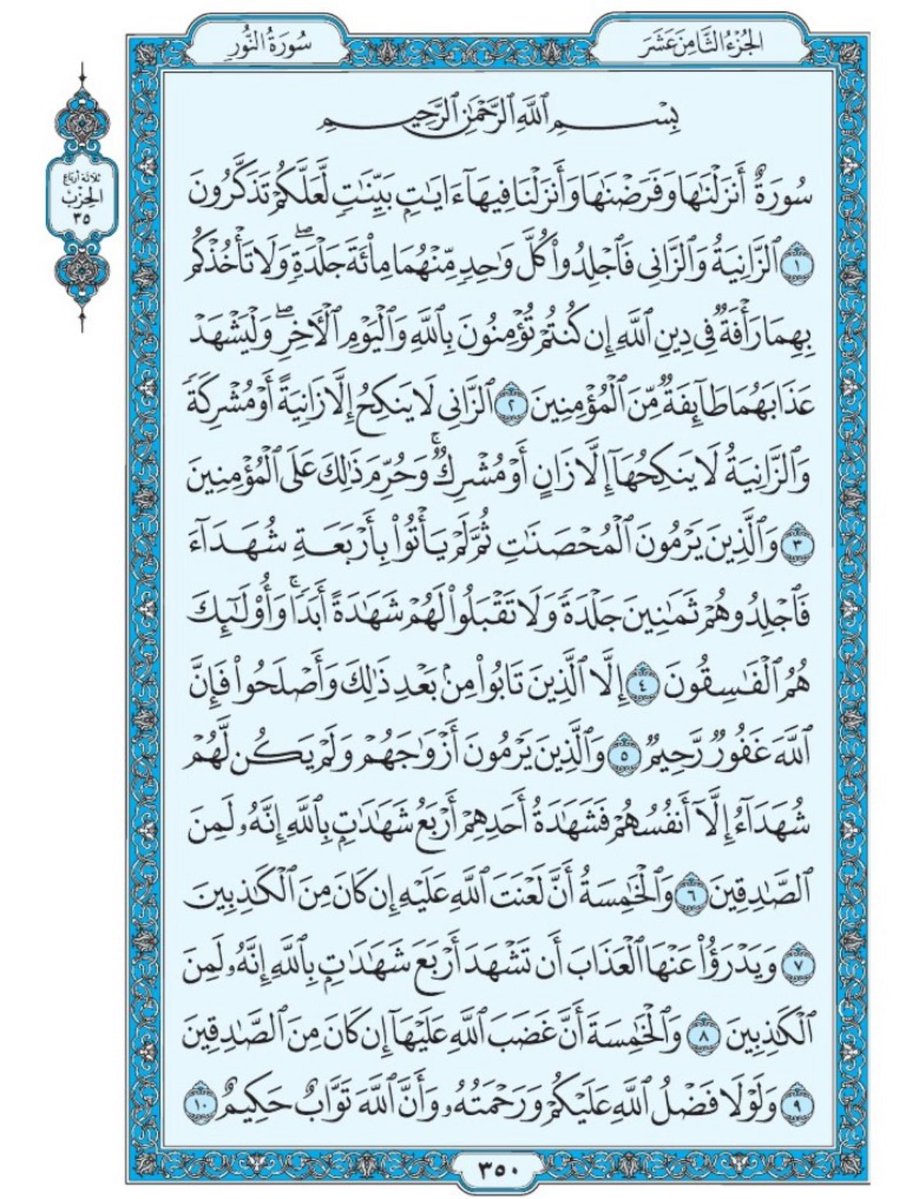 الجُزْءُ الثَّامِنَ عَشَرَ
سُورَةُ النُّورِ
ثلاثة أرباع
الحِزْب
٣٥
بِسْمِ ٱللَّهِ ٱلرَّحْمَٰنِ ٱلرَّحِيمِ
سُورَةٌ أَنزَلْنَٰهَا وَفَرَضْنَٰهَا وَأَنزَلْنَا فِيهَآ ءَايَٰتِۭ بَيِّنَٰتٍ لَّعَلَّكُمْ تَذَكَّرُونَ
١ ٱلزَّانِيَةُ وَٱلزَّانِى فَٱجْلِدُوا۟ كُلَّ وَٰحِدٍ مِّنْهُمَا مِا۟ئَةَ جَلْدَةٍ ۖ وَلَا تَأْخُذْكُم
بِهِمَا رَأْفَةٌ فِى دِينِ ٱللَّهِ إِن كُنتُمْ تُؤْمِنُونَ بِٱللَّهِ وَٱلْيَوْمِ ٱلْءَاخِرِ ۖ وَلْيَشْهَدْ
عَذَابَهُمَا طَآئِفَةٌ مِّنَ ٱلْمُؤْمِنِينَ ٢ ٱلزَّانِى لَا يَنكِحُ إِلَّا زَانِيَةً أَوْ مُشْرِكَةً
وَٱلزَّانِيَةُ لَا يَنكِحُهَآ إِلَّا زَانٍ أَوْ مُشْرِكٌ ۚ وَحُرِّمَ ذَٰلِكَ عَلَى ٱلْمُؤْمِنِينَ
٣ وَٱلَّذِينَ يَرْمُونَ ٱلْمُحْصَنَٰتِ ثُمَّ لَمْ يَأْتُوا۟ بِأَرْبَعَةِ شُهَدَآءَ
فَٱجْلِدُوهُمْ ثَمَٰنِينَ جَلْدَةً وَلَا تَقْبَلُوا۟ لَهُمْ شَهَٰدَةً أَبَدًا ۚ وَأُو۟لَٰٓئِكَ
هُمُ ٱلْفَٰسِقُونَ ٤ إِلَّا ٱلَّذِينَ تَابُوا۟ مِنۢ بَعْدِ ذَٰلِكَ وَأَصْلَحُوا۟ فَإِنَّ
ٱللَّهَ غَفُورٌ رَّحِيمٌ ٥ وَٱلَّذِينَ يَرْمُونَ أَزْوَٰجَهُمْ وَلَمْ يَكُن لَّهُمْ
شُهَدَآءُ إِلَّآ أَنفُسُهُمْ فَشَهَٰدَةُ أَحَدِهِمْ أَرْبَعُ شَهَٰدَٰتِۭ بِٱللَّهِ إِنَّهُۥ لَمِنَ
ٱلصَّٰدِقِينَ ٦ وَٱلْخَٰمِسَةُ أَنَّ لَعْنَتَ ٱللَّهِ عَلَيْهِ إِن كَانَ مِنَ ٱلْكَٰذِبِينَ
٧ وَيَدْرَؤُا۟ عَنْهَا ٱلْعَذَابَ أَن تَشْهَدَ أَرْبَعَ شَهَٰدَٰتِۭ بِٱللَّهِ إِنَّهُۥ لَمِنَ
ٱلْكَٰذِبِينَ ٨ وَٱلْخَٰمِسَةَ أَنَّ غَضَبَ ٱللَّهِ عَلَيْهَآ إِن كَانَ مِنَ ٱلصَّٰدِقِينَ
٩ وَلَوْلَا فَضْلُ ٱللَّهِ عَلَيْكُمْ وَرَحْمَتُهُۥ وَأَنَّ ٱللَّهَ تَوَّابٌ حَكِيمٌ ١٠
٣٥٠